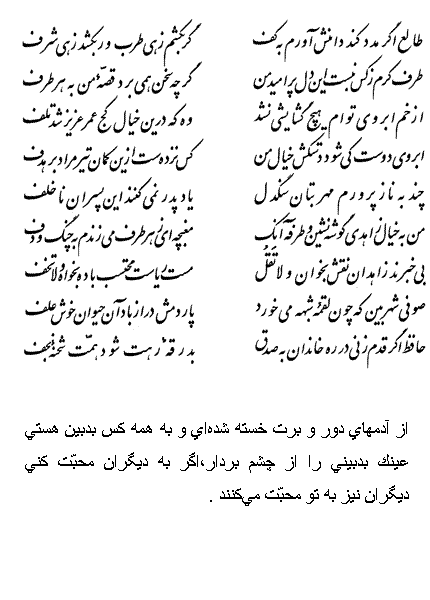 طالع اگر مدد کند دامنش آورم به کف گر بکشم زهی طرب ور بکشد زهی شرف
طرف کرم ز کس نبست این دل پر امید من گر چه سخن همی برد قصهٔ من به هر طرف
از خم ابروی توام هیچ گشایشی نشد وه که درین خیال کج عمر عزیز شد تلف
ابروی دوست کی شود دستکش خیال من کس نزده‌ست ازین کمان تیر مراد بر هدف
چند به ناز پرورم مهر بتان سنگدل یاد پدر نمی‌کنند این پسران ناخلف
من به خیال زاهدی گوشه‌نشین و طرفه آنک مغبچه‌ای ز هر طرف می‌زندم به چنگ و دف
بی‌خبرند زاهدان نقش بخوان و لا تقل مست ریاست محتسب باده بخواه و لا تخف
صوفی شهر بین که چون لقمهٔ شبهه می‌خورد پاردمش دراز باد آن حیوان خوش علف
حافظ اگر قدم زنی در ره خاندان به صدق بدرقهٔ رهت شود همّت شحنهٔ نجف
از آدمهاي دور و برت خسته شده‌اي و به همه كس بدبين هستي
عينك بدبيني را از چشم بردار،اگر به ديگران محبّت كني
ديگران نيز به تو محبّت مي‌كنند .